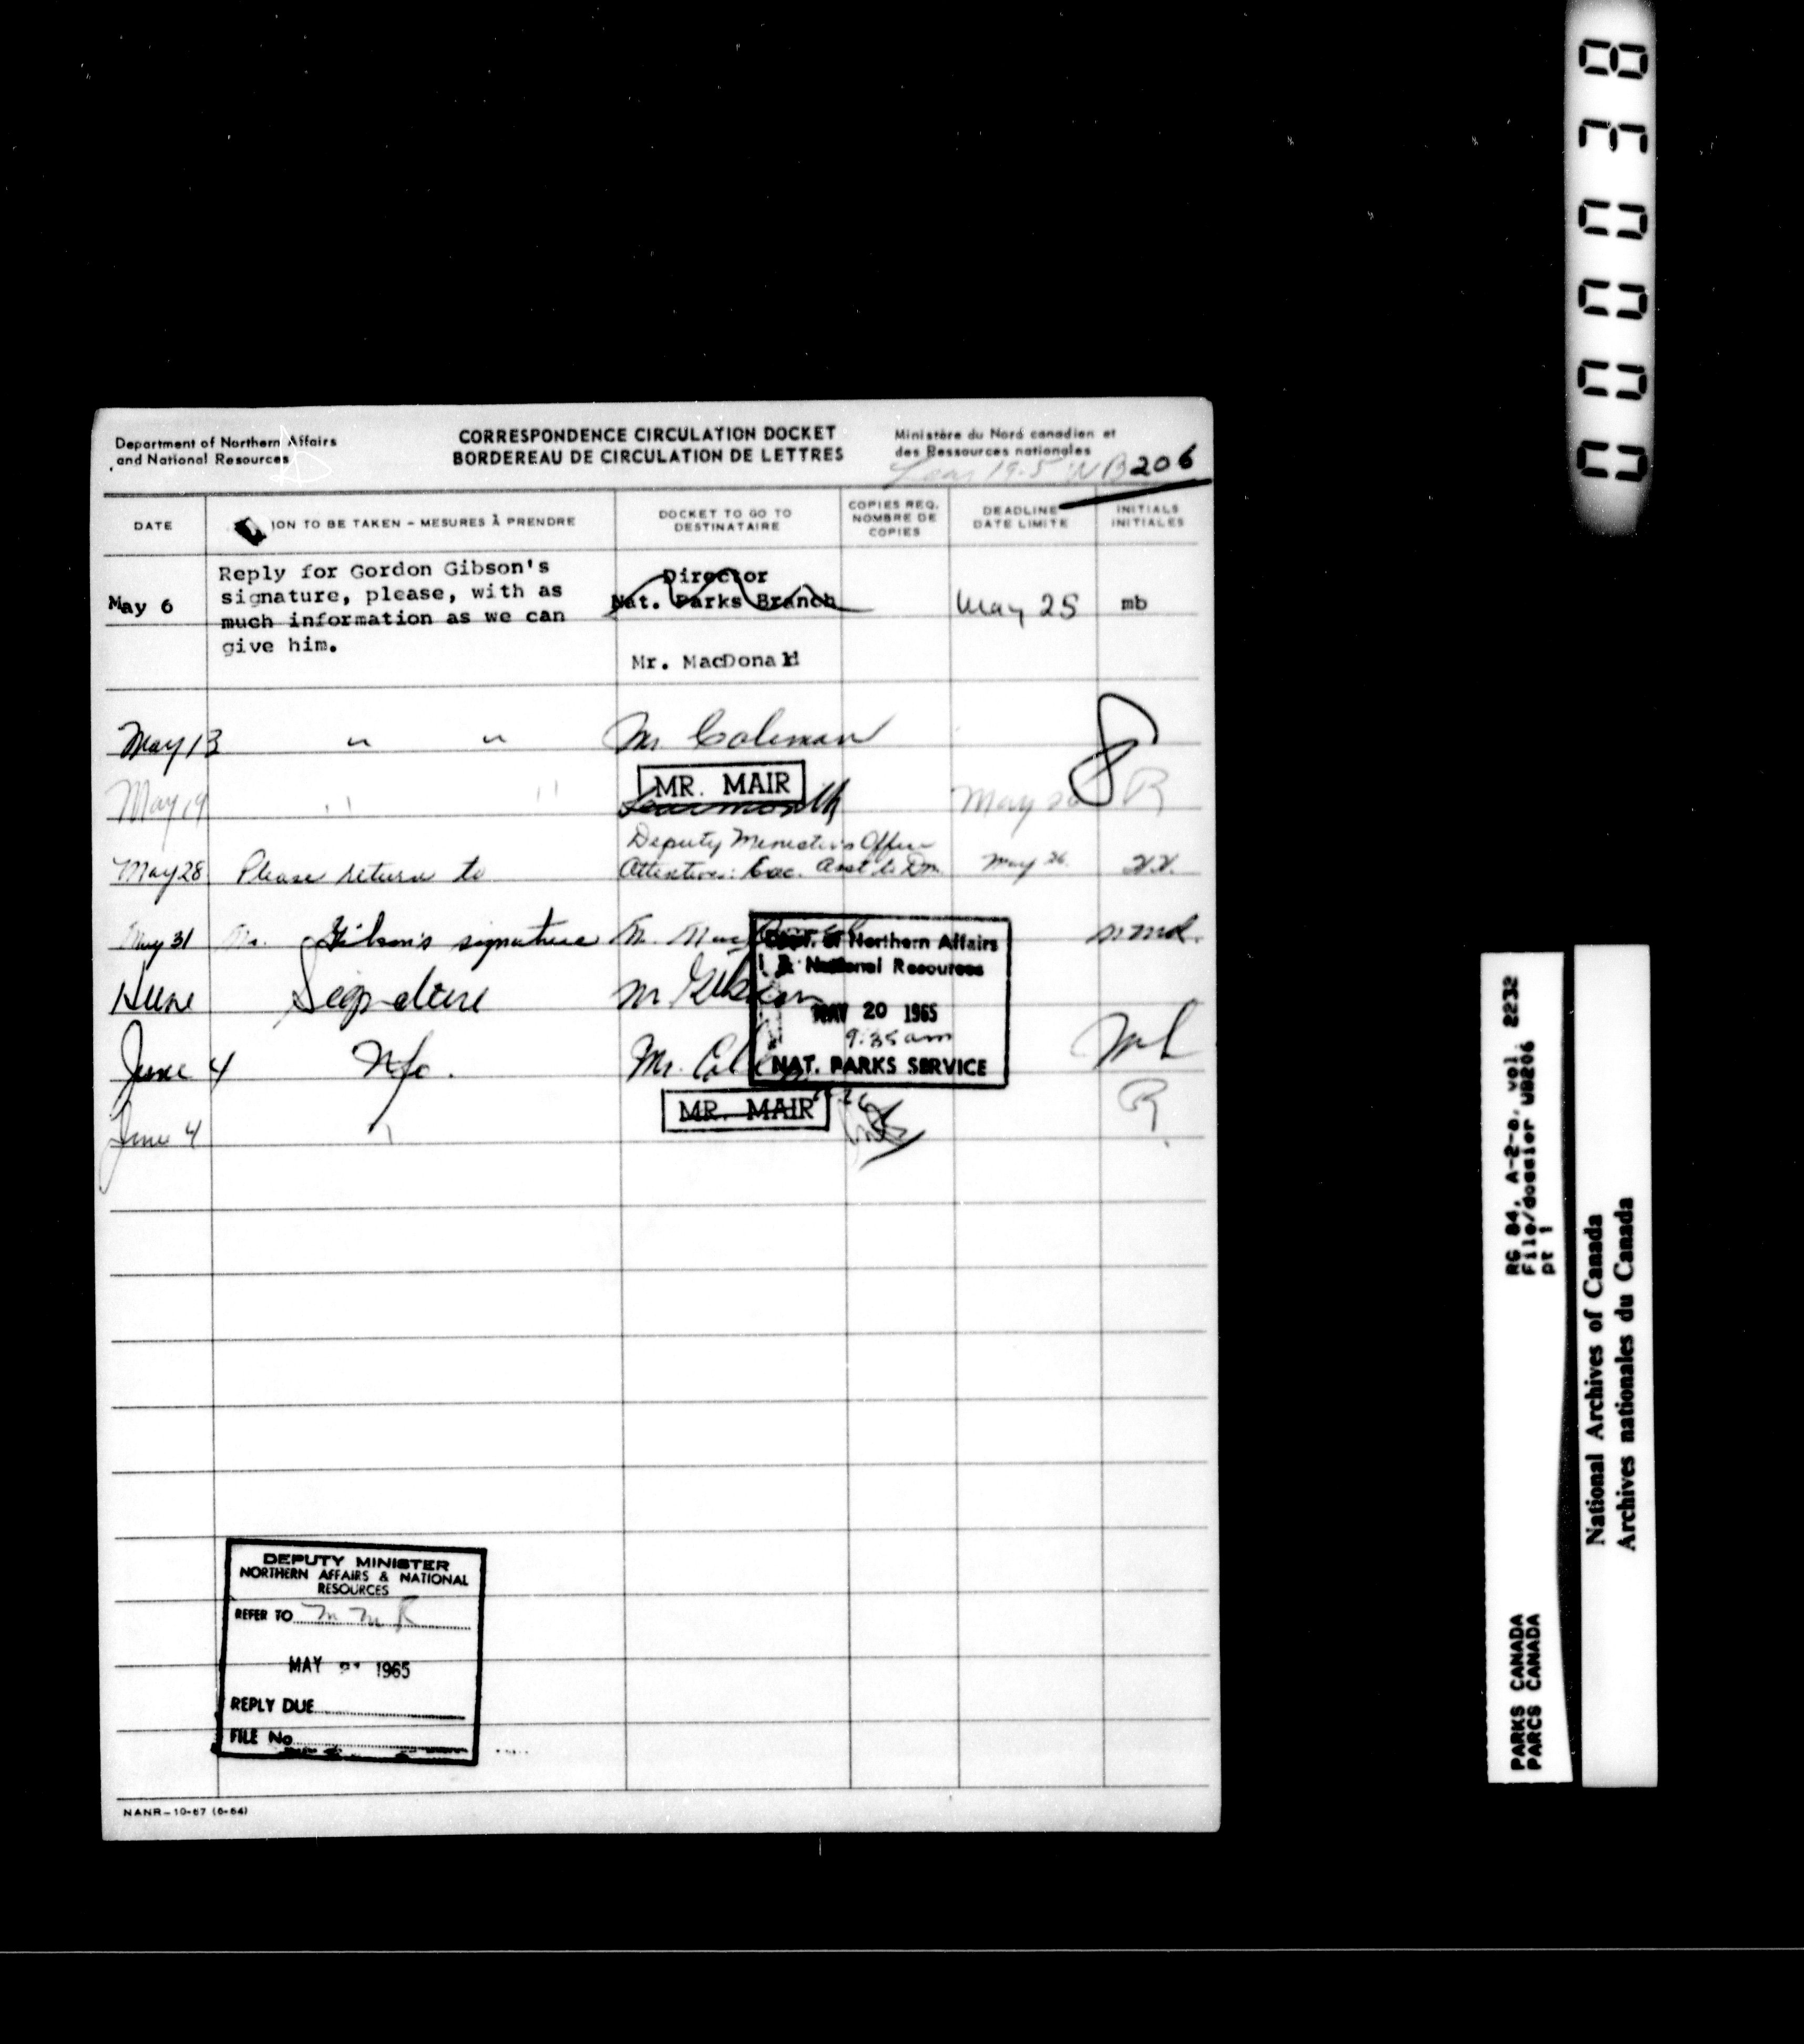 Department of Northern Affairs
and National Resources
CORRESPONDENCE CIRCULATION DOCKET
BORDEREAU DE CIRCULATION DE LETTRES
Ministère du Nord canadien et
des Ressources nationales
WB206
DATE
ION TO BE TAKEN – MESURES À PRENDRE
DOCKET TO GO TO
DESTINATAIRE
COPIES REQ.
NOMBRE DE
COPIES
DEADLINE
DATE LIMITE
INITIALS
INITIALES
May 6
Reply for Gordon Gibson's
signature, please, with as
much information as we can
give him.
Director
Nat. Parks Branch
Mr. MacDonald
May 25
mb
May 13
" "
Mr Coleman
May 19
" "
MR. MAIR
Learmonth
May 26
R
May 28
Please return to
Deputy Minister's Office
Attention: Exec. Asst to Dm.
May 26
May 31
Mr. Gibson's signature
Dept. of Northern Affairs
& National Resources
MAY 20 1965
9:35 am
NAT. PARKS SERVICE
June
Signature
Mr Gibson
June 4
N/a.
Mr.
June 4
MR. MAIR
R
DEPUTY MINISTER
NORTHERN AFFAIRS & NATIONAL
RESOURCES
REFER TO
MAY 1965
REPLY DUE
FILE No
NANR–10-67 (6-64)
RG 84, A-2-a, vol. 2232
File/dossier WB206
pt 1
PARKS CANADA
PARCS CANADA
National Archives of Canada
Archives nationales du Canada